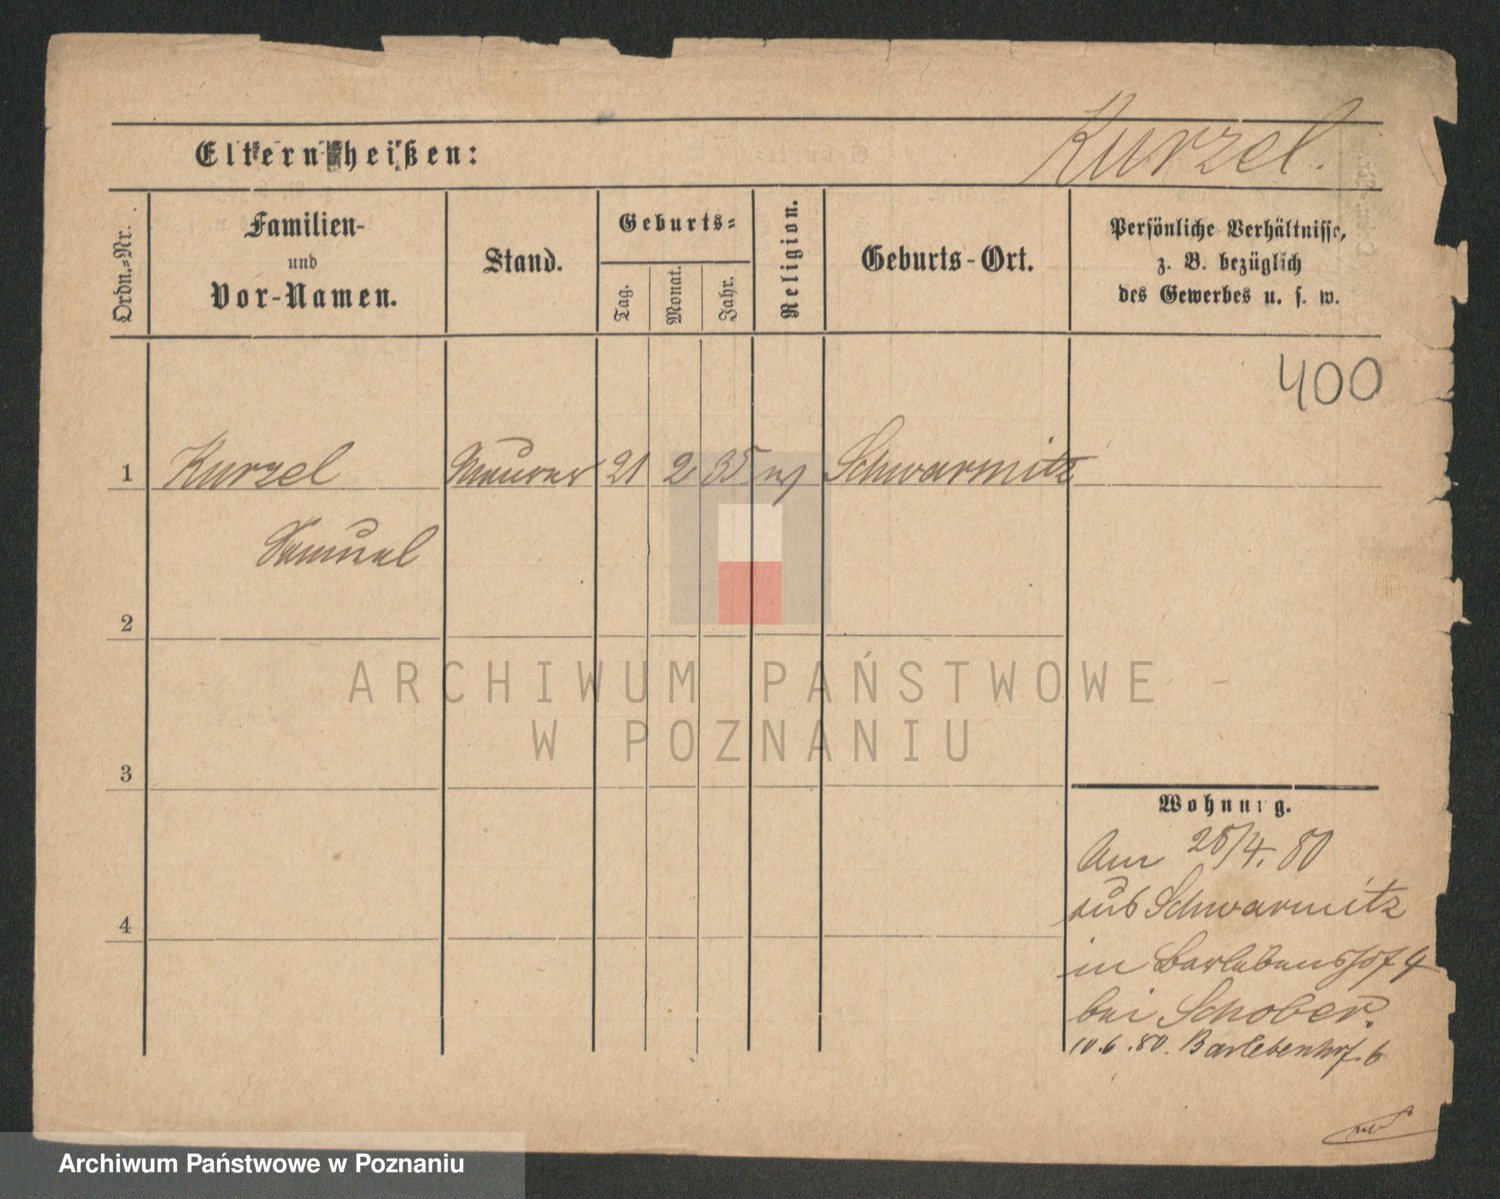 Eltern heißen:
Kurzel.
Ordn.-Nr.
Familien-
und
Vor-Namen.
Stand.
Geburts-
Tag.
Monat.
Jahr.
Religion.
Geburts-Ort.
Persönliche Verhältnisse,
z. B. bezüglich
des Gewerbes u. s. w.
400
1 Kurzel Maurer 21 2 35 Schwarmitz
Samuel
2
ARCHIWUM PAŃSTWOWE
W POZNANIU
3
Wohnung.
Am 28/4. 80
aus Schwarmitz
4
in Barlebenshof 4
bei Schober.
10.6.80. Barlebenhof. 6
Archiwum Państwowe w Poznaniu